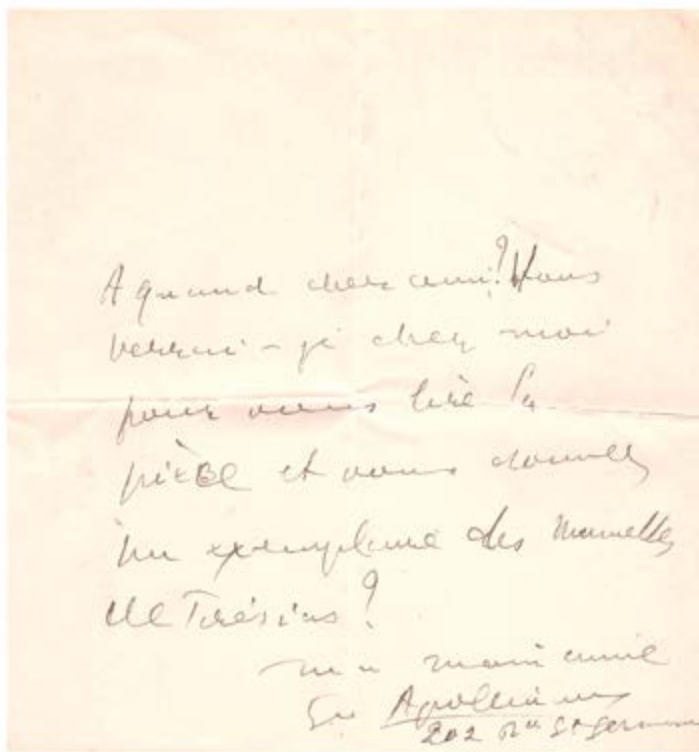 A quand cher ami? Vous
verrai-je chez moi
pour vous lire la
pièce et vous donner
un exemplaire des Mamelles
de Tirésias?
ma main amie
Gui Apollinaire
202 Bd St Germain